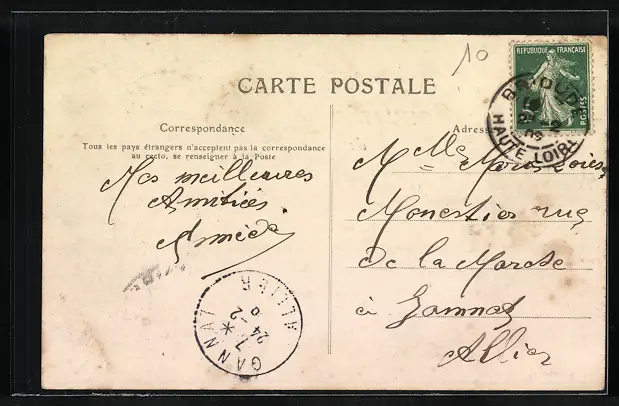 10
RÉPUBLIQUE FRANÇAISE
POSTES
HAUTE LOIRE
CARTE POSTALE
Correspondance
Tous les pays étrangers n'acceptent pas la correspondance
au recto, se renseigner à la Poste
Mes meilleures
Amitiés
GANNAT
ALLIER
7 *
24 -2
Adresse
Mlle Marie
Monestier rue
de la
à Gannat
Allier